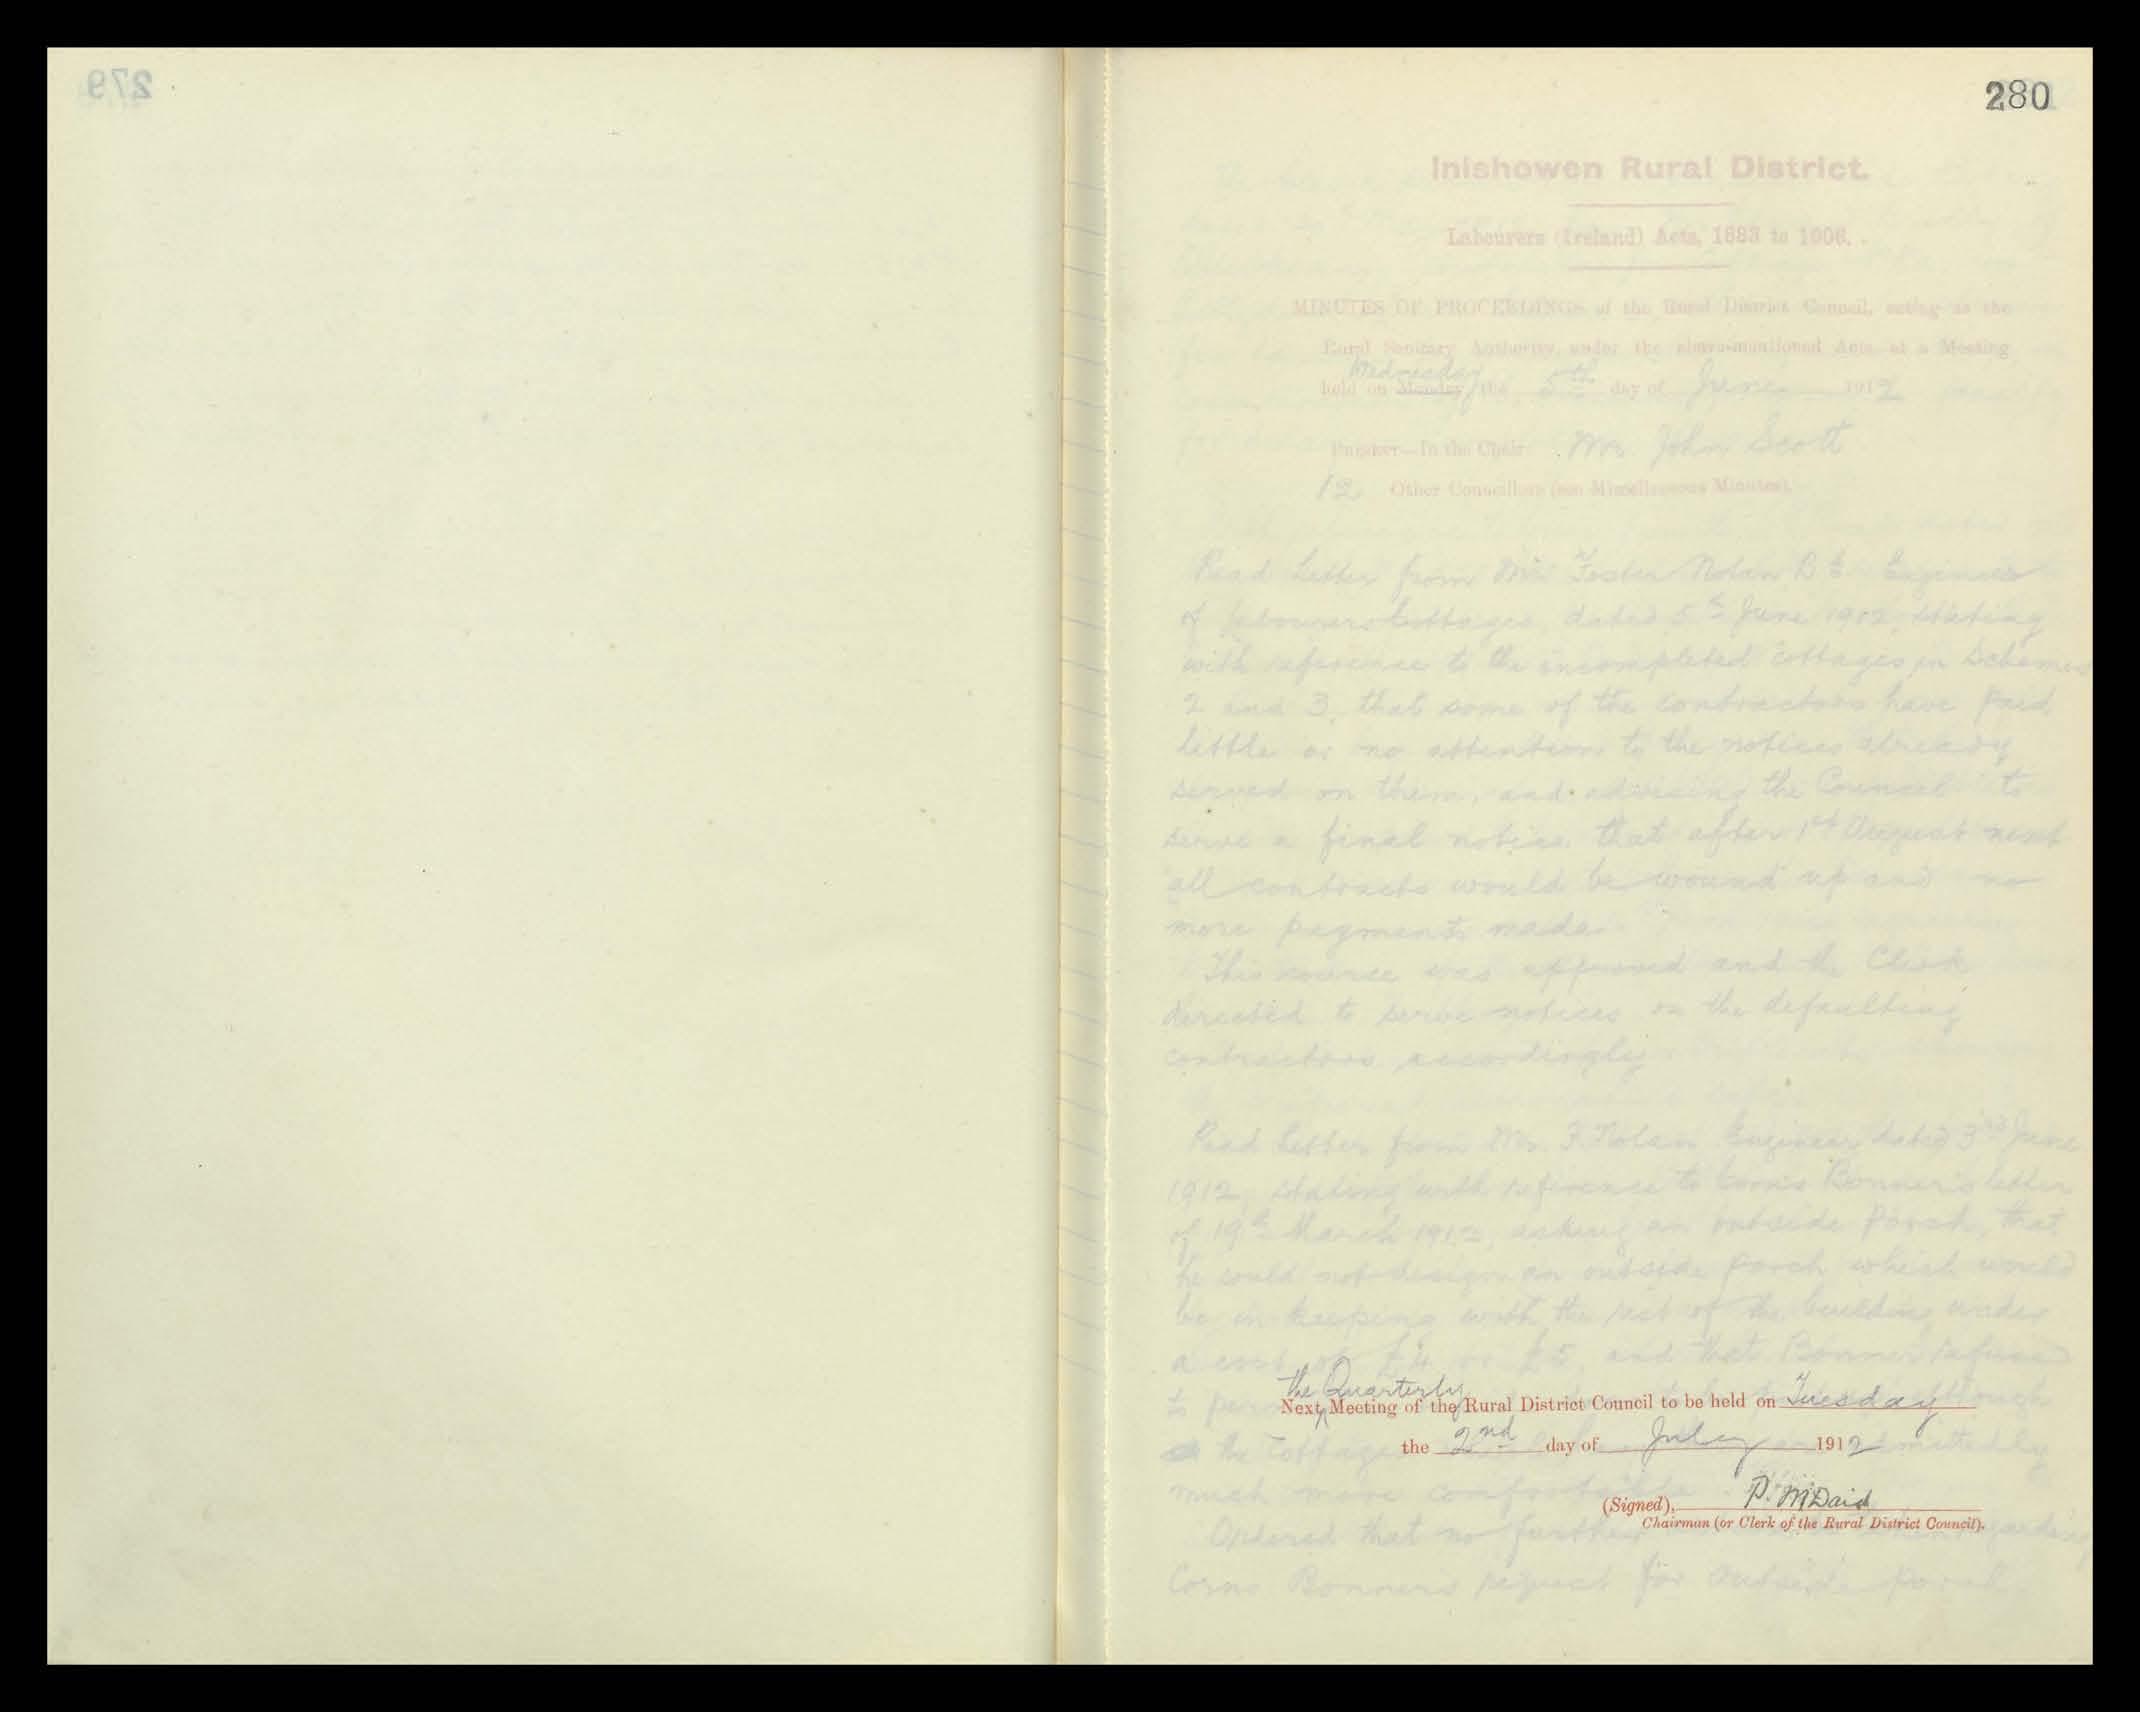 279
280
Inishowen Rural District.
Labourers (Ireland) Acts, 1883 to 1906.
MINUTES OF PROCEEDINGS of the Rural District Council, acting as the
Rural Sanitary Authority, under the above-mentioned Acts, at a Meeting
Wednesday
held on Monday the 5th day of June 1912
Present—In the Chair Mr. John Scott
12 Other Councillors (see Miscellaneous Minutes).
Read Letter from Mr Foster Nolan B E Engineer
of Labourers Cottages, dated 5th June 1912 stating
with reference to the incompleted cottages in Schemes
2 and 3, that some of the contractors have paid
little or no attention to the notices already
served on them, and advising the Council to
serve a final notice that after 1st August next
all contracts would be wound up and no
more payments made.
This course was approved and the Clerk
directed to serve notices on the defaulting
contractors accordingly
Read Letter from Mr. F. Nolan Engineer dated 3rd June
1912, stating with reference to Corns Bonner's letter
of 19th March 1912, asking an outside porch, that
he could not design an outside porch which would
be in keeping with the rest of the building under
a cost of £4 or £5, and that Bonner refused
to
the Quarterly
Next Meeting of the Rural District Council to be held on Tuesday
the 2nd day of July 1912
the Cottage
much more comfortable
(Signed), P. McDaid
Chairman (or Clerk of the Rural District Council).
Ordered that no further
Corns Bonner's request for outside porch